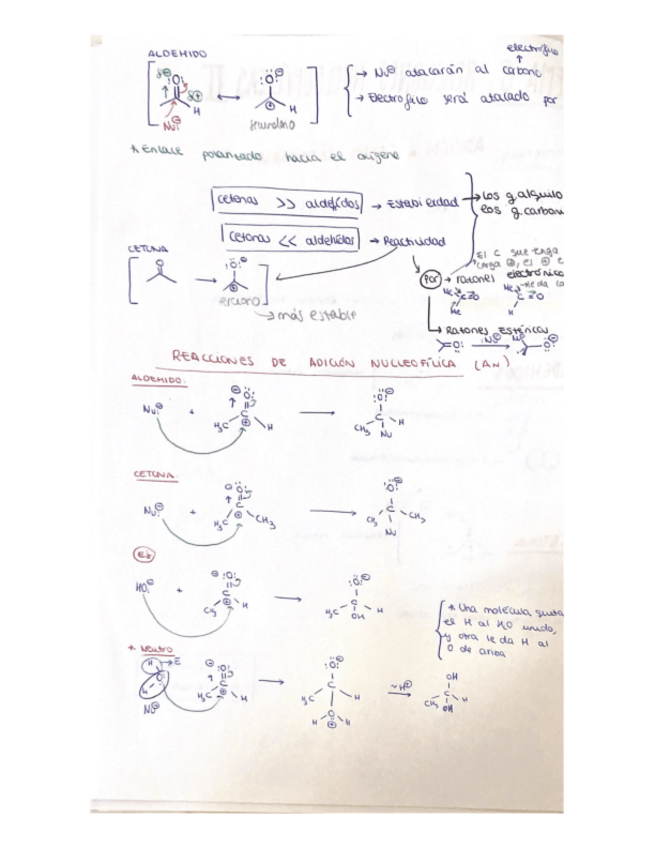 ALDEHIDO
electrófilo
→ Nu⊖ atacarán al carbono
→ Electrófilo será atacado por
* Enlace polarizado hacia el oxígeno
cetonas >> aldehídos → Estabilidad → Los g. alquilo
los g. carbon
cetonas << aldehídos → Reactividad
CETONA
más estable
El C que tenga
carga ⊕, el ⊕ e
por → razones electrónica
→ Razones Estéricas
REACCIONES DE ADICIÓN NUCLEOFÍLICA (AN)
ALDEHIDO:
Nu:⊖ + H3C H → CH3 H Nu
CETONA:
Nu:⊖ + H3C CH3 → CH3 CH3 Nu
Ej
HO:⊖ + CH3 H → H3C H OH
* Una molécula quita
el H al H2O unido,
y otra le da H al
O de arriba
* Neutro
H → E
Nu⊖ H3C H → H3C H H O H ~H⊕ → OH CH3 H OH